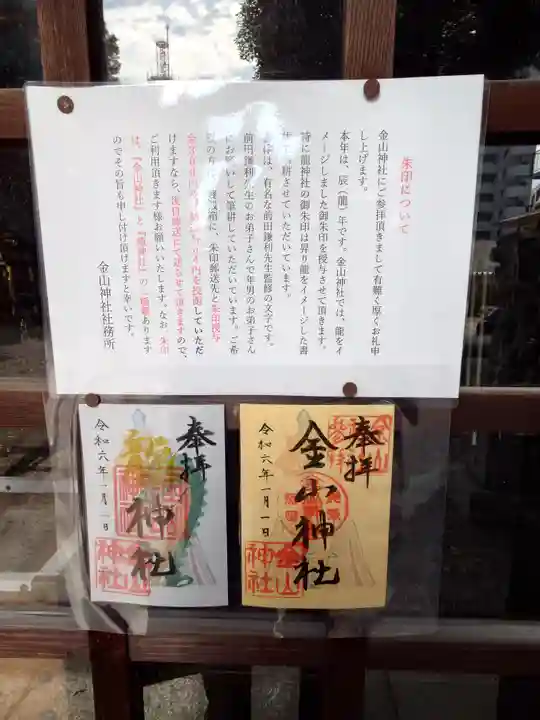 朱印について
金山神社にご参拝頂きまして有難く厚くお礼申
し上げます。
本年は、辰（龍）年です。金山神社では、龍をイ
メージしました御朱印を授与させて頂きます。
特に龍神社の御朱印は昇り龍をイメージした書
で 耕させていただいています。
は、有名な前田鎌利先生監修の文字です。
前田鎌利先生のお弟子さんで年男のお弟子さん
にお願いして筆耕していただいています。ご希
の 、 箱に、朱印郵送先と朱印授与
していただ
けますなら、後日郵送にて送らせて頂きますので、
ご利用頂きます様お願いいたします。なお、朱印
は、『金山神社』と『龍神社』の二種類あります
のでその旨も申し付け頂けますと幸いです。
金山神社社務所
奉拝
神社
令和六年一月一日
金山神社
奉拝
金山神社
令和六年一月一日
金山神社